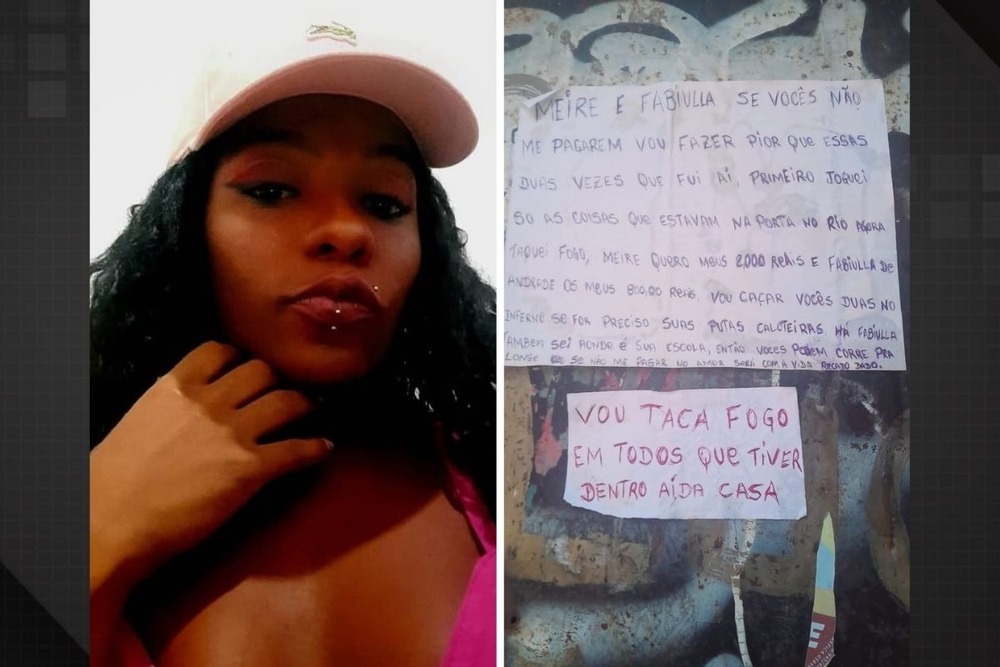 MEIRE E FABIULLA SE VOCÊS NÃO
ME PAGAREM VOU FAZER PIOR QUE ESSAS
DUAS VEZES QUE FUI AÍ, PRIMEIRO JOGUEI
SO AS COISAS QUE ESTAVAM NA PORTA NO RIO AGORA
TAQUEI FOGO, MEIRE QUERO MEUS 2000 REAIS E FABIULLA DE
ANDRADE OS MEUS 800,00 REAIS. VOU CAÇAR VOCÊS DUAS NO
INFERNO SE FOR PRECISO SUAS PUTAS CALOTEIRAS. HÁ FABIULLA
TAMBEM SEI AONDE É SUA ESCOLA, ENTÃO VOCES PODEM CORRE PRA
LONGE SE NÃO ME PAGAR NO AMOR SERÁ COM A VIDA RECADO DADO.
VOU TACA FOGO
EM TODOS QUE TIVER
DENTRO AÍ,DA CASA